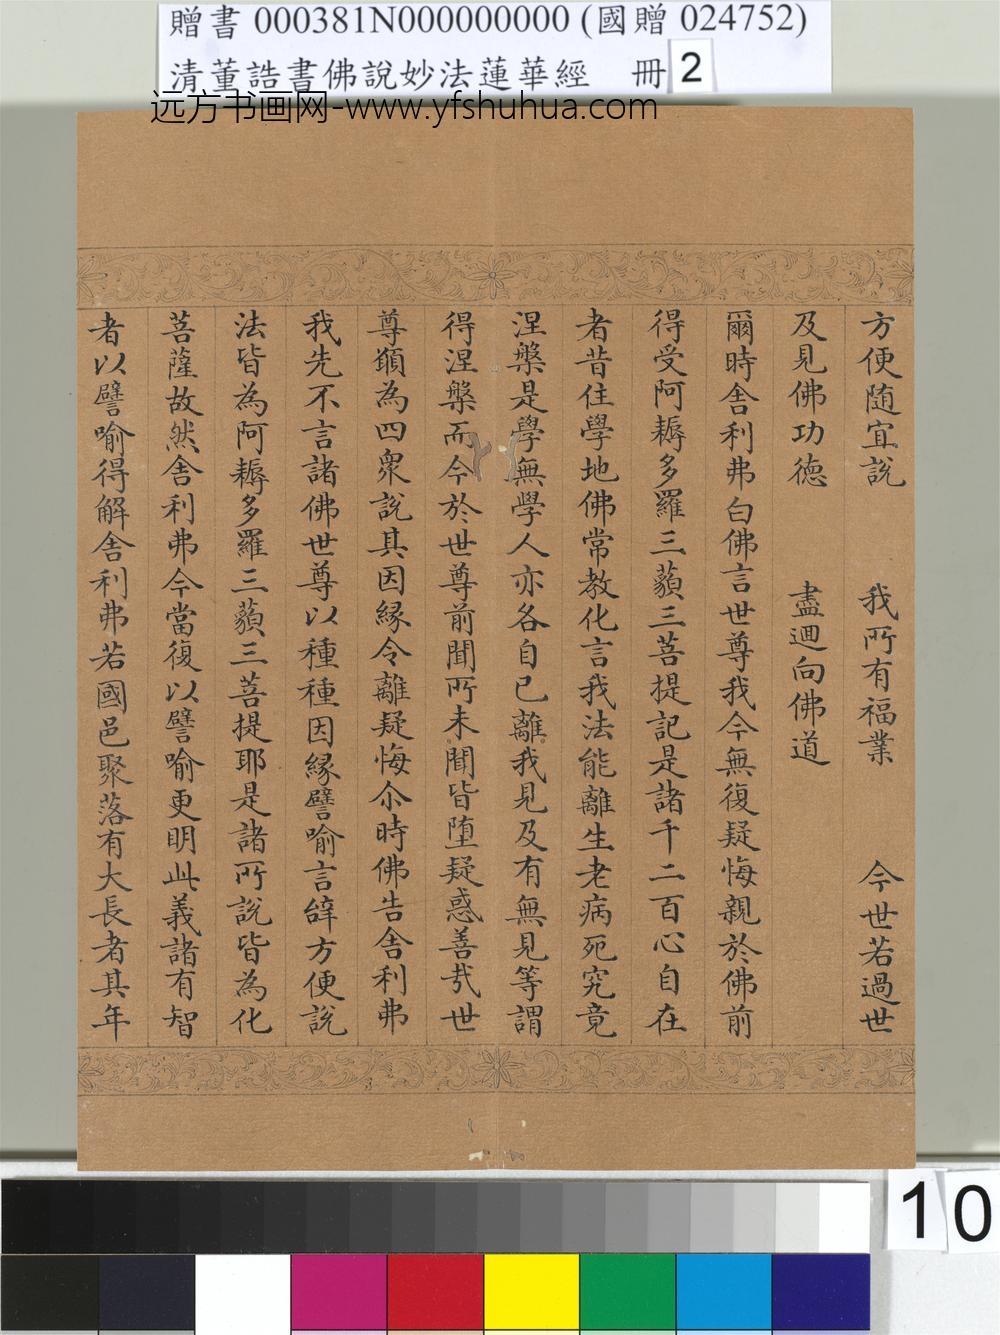 贈書 000381N000000000 (國贈 024752)
清董誥書佛說妙法蓮華經 冊 2
远方书画网-www.yfshuhua.com
方便随宜說 我所有福業 今世若過世
及見佛功德 盡迴向佛道
爾時舎利弗白佛言世尊我今無復疑悔親於佛前
得受阿耨多羅三藐三菩提記是諸千二百心自在
者昔住學地佛常教化言我法能離生老病死究竟
涅槃是學無學人亦各自已離我見及有無見等謂
得涅槃而今於世尊前聞所未聞皆堕疑惑善哉世
尊願為四衆說其因緣令離疑悔尒時佛告舎利弗
我先不言諸佛世尊以種種因緣譬喻言辞方便說
法皆為阿耨多羅三藐三菩提耶是諸所說皆為化
菩薩故然舎利弗今當復以譬喻更明此義諸有智
者以譬喻得解舎利弗若國邑聚落有大長者其年
10